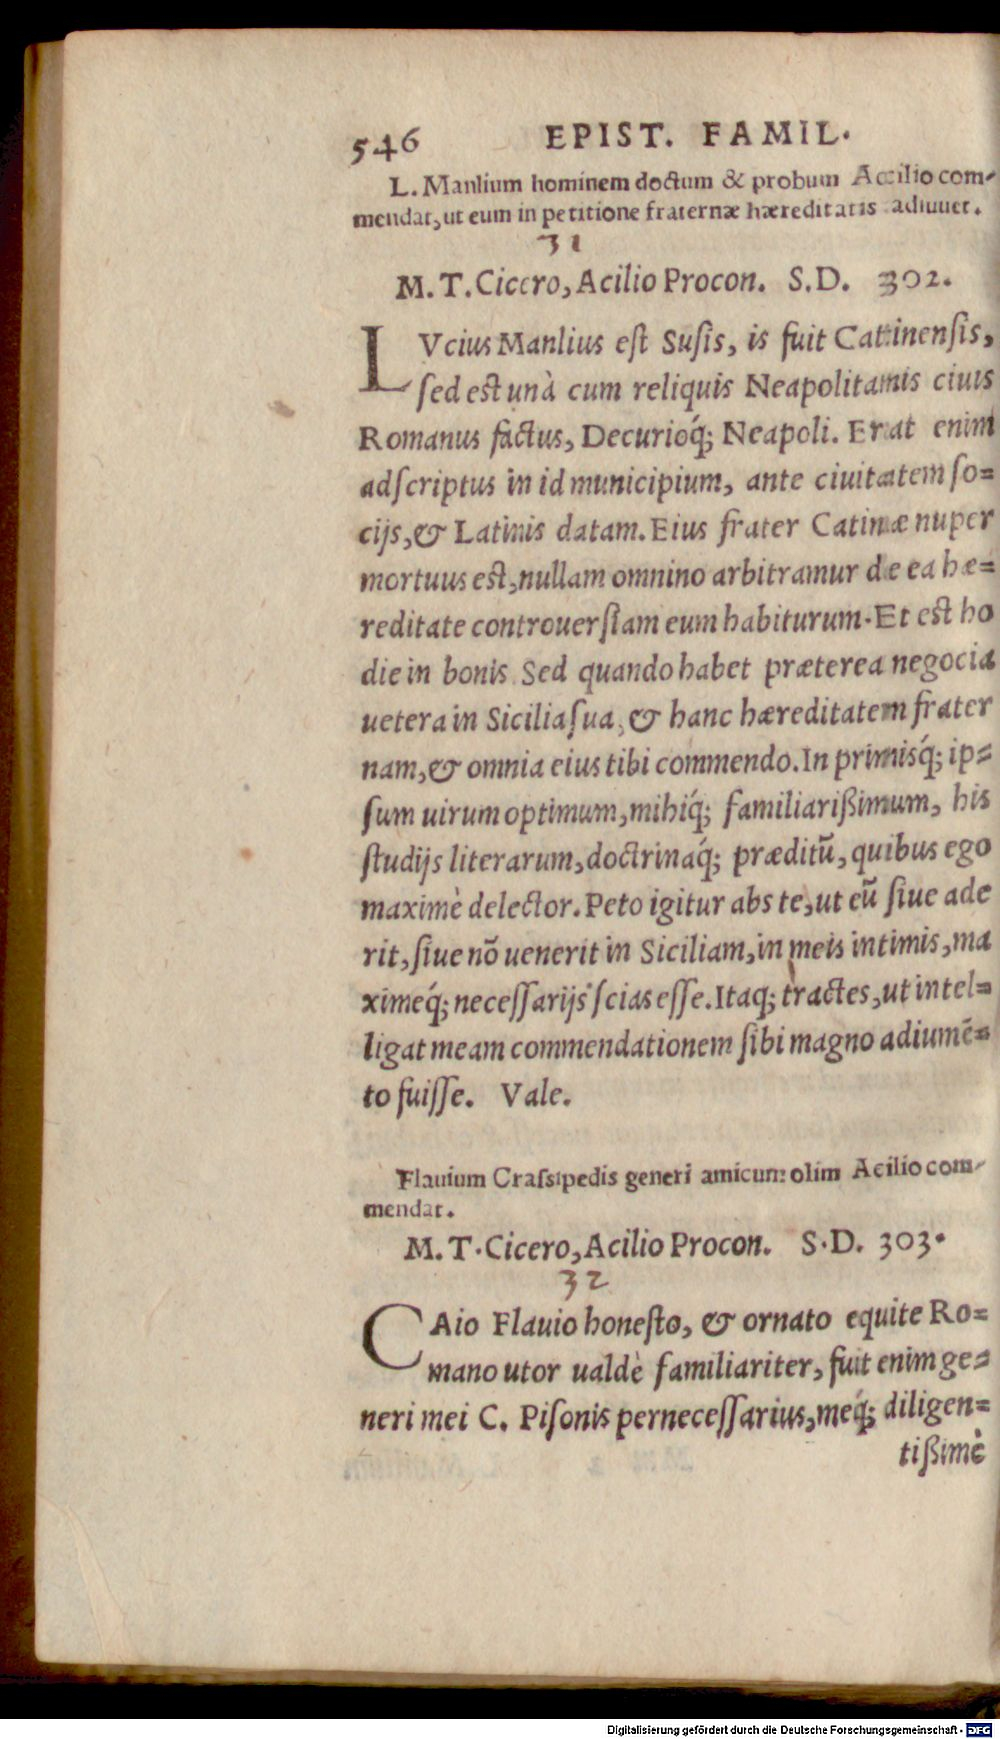 546 EPIST. FAMIL.
L. Manlium hominem doctum & probum Accilio com-
mendat, ut eum in petitione fraternæ hæreditatis adiuuet.
31
M. T. Cicero, Acilio Procon. S. D. 302.
LVcius Manlius eſt Suſis, is fuit Catinenſis,
ſed est unà cum reliquis Neapolitanis ciuis
Romanus factus, Decurioq́; Neapoli. Erat enim
adſcriptus in id municipium, ante ciuitatem ſo=
cijs, & Latinis datam. Eius frater Catinæ nuper
mortuus est, nullam omnino arbitramur de ea hæ=
reditate controuerſiam eum habiturum. Et est ho
die in bonis. Sed quando habet præterea negocia
uetera in Sicilia ſua, & hanc hæreditatem frater
nam, & omnia eius tibi commendo. In primisq́; ip=
ſum uirum optimum, mihiq́; familiarißimum, his
ſtudijs literarum, doctrinaq́; præditū, quibus ego
maximè delector. Peto igitur abs te, ut eū ſiue ade
rit, ſiue nō uenerit in Siciliam, in meis intimis, ma
ximeq́; neceſſarijs ſcias eſſe. Itaq; tractes, ut intel=
ligat meam commendationem ſibi magno adiumē=
to fuiſſe. Vale.
Flauium Craſsipedis generi amicum olim Acilio com-
mendat.
M. T. Cicero, Acilio Procon. S. D. 303.
32
CAio Flauio honeſto, & ornato equite Ro=
mano utor ualdè familiariter, fuit enim ge=
neri mei C. Piſonis perneceſſarius, meq́; diligen=
tißimè
Digitalisierung gefördert durch die Deutsche Forschungsgemeinschaft - DFG